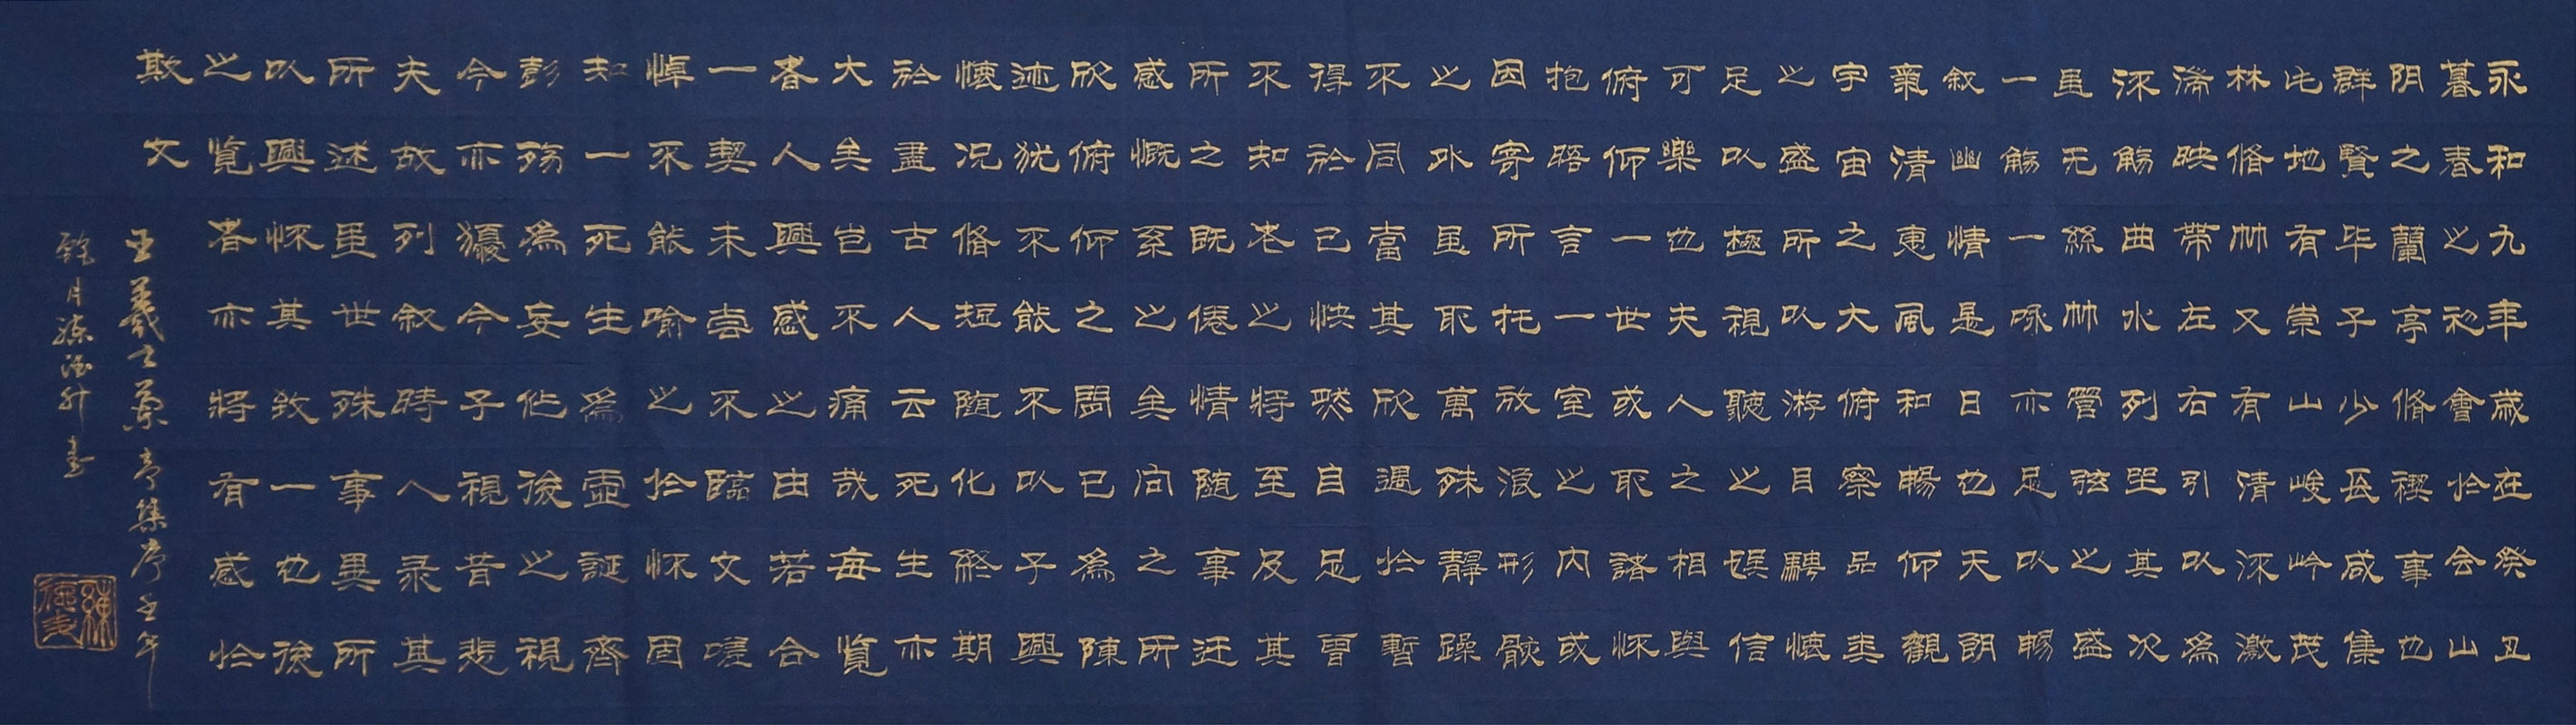 永和九年歲在癸丑
暮春之初會於会山
阴之蘭亭脩禊事也
群賢毕子少長咸集
此地有崇山峻岭茂
林脩竹又有清流激
湍映带左右引以為
流觞曲水列坐其次
虽无絲竹管弦之盛
一觞一咏亦足以暢
叙幽情是日也天朗
氣清惠風和暢仰觀
宇宙之大俯察品类
之盛所以游目騁懷
足以極視聽之娱信
可樂也夫人之相與
俯仰一世或取諸怀
抱晤言一室之内或
因寄所托放浪形骸
之外虽取萬殊靜躁
不同當其欣遇於暫
得於己快然自足曾
不知老之將至及其
所之既倦情随事迁
感慨系之矣向之所
欣俯仰之閒已為陳
迹犹不能不以子興
懷况脩短随化終期
於盡古人云死生亦
大矣岂不痛哉每覧
者人興感之由若合
一契未嘗不臨文嗟
悼不能喻之於怀固
知一死生為虛誕齊
彭殇為妄作後之視
今亦猶今子視昔悲
夫故列叙時人录其
所述虽世殊事異所
以興怀其致一也後
之覧者亦將有感於
欺文
王羲之蘭亭集序壬年
月 書